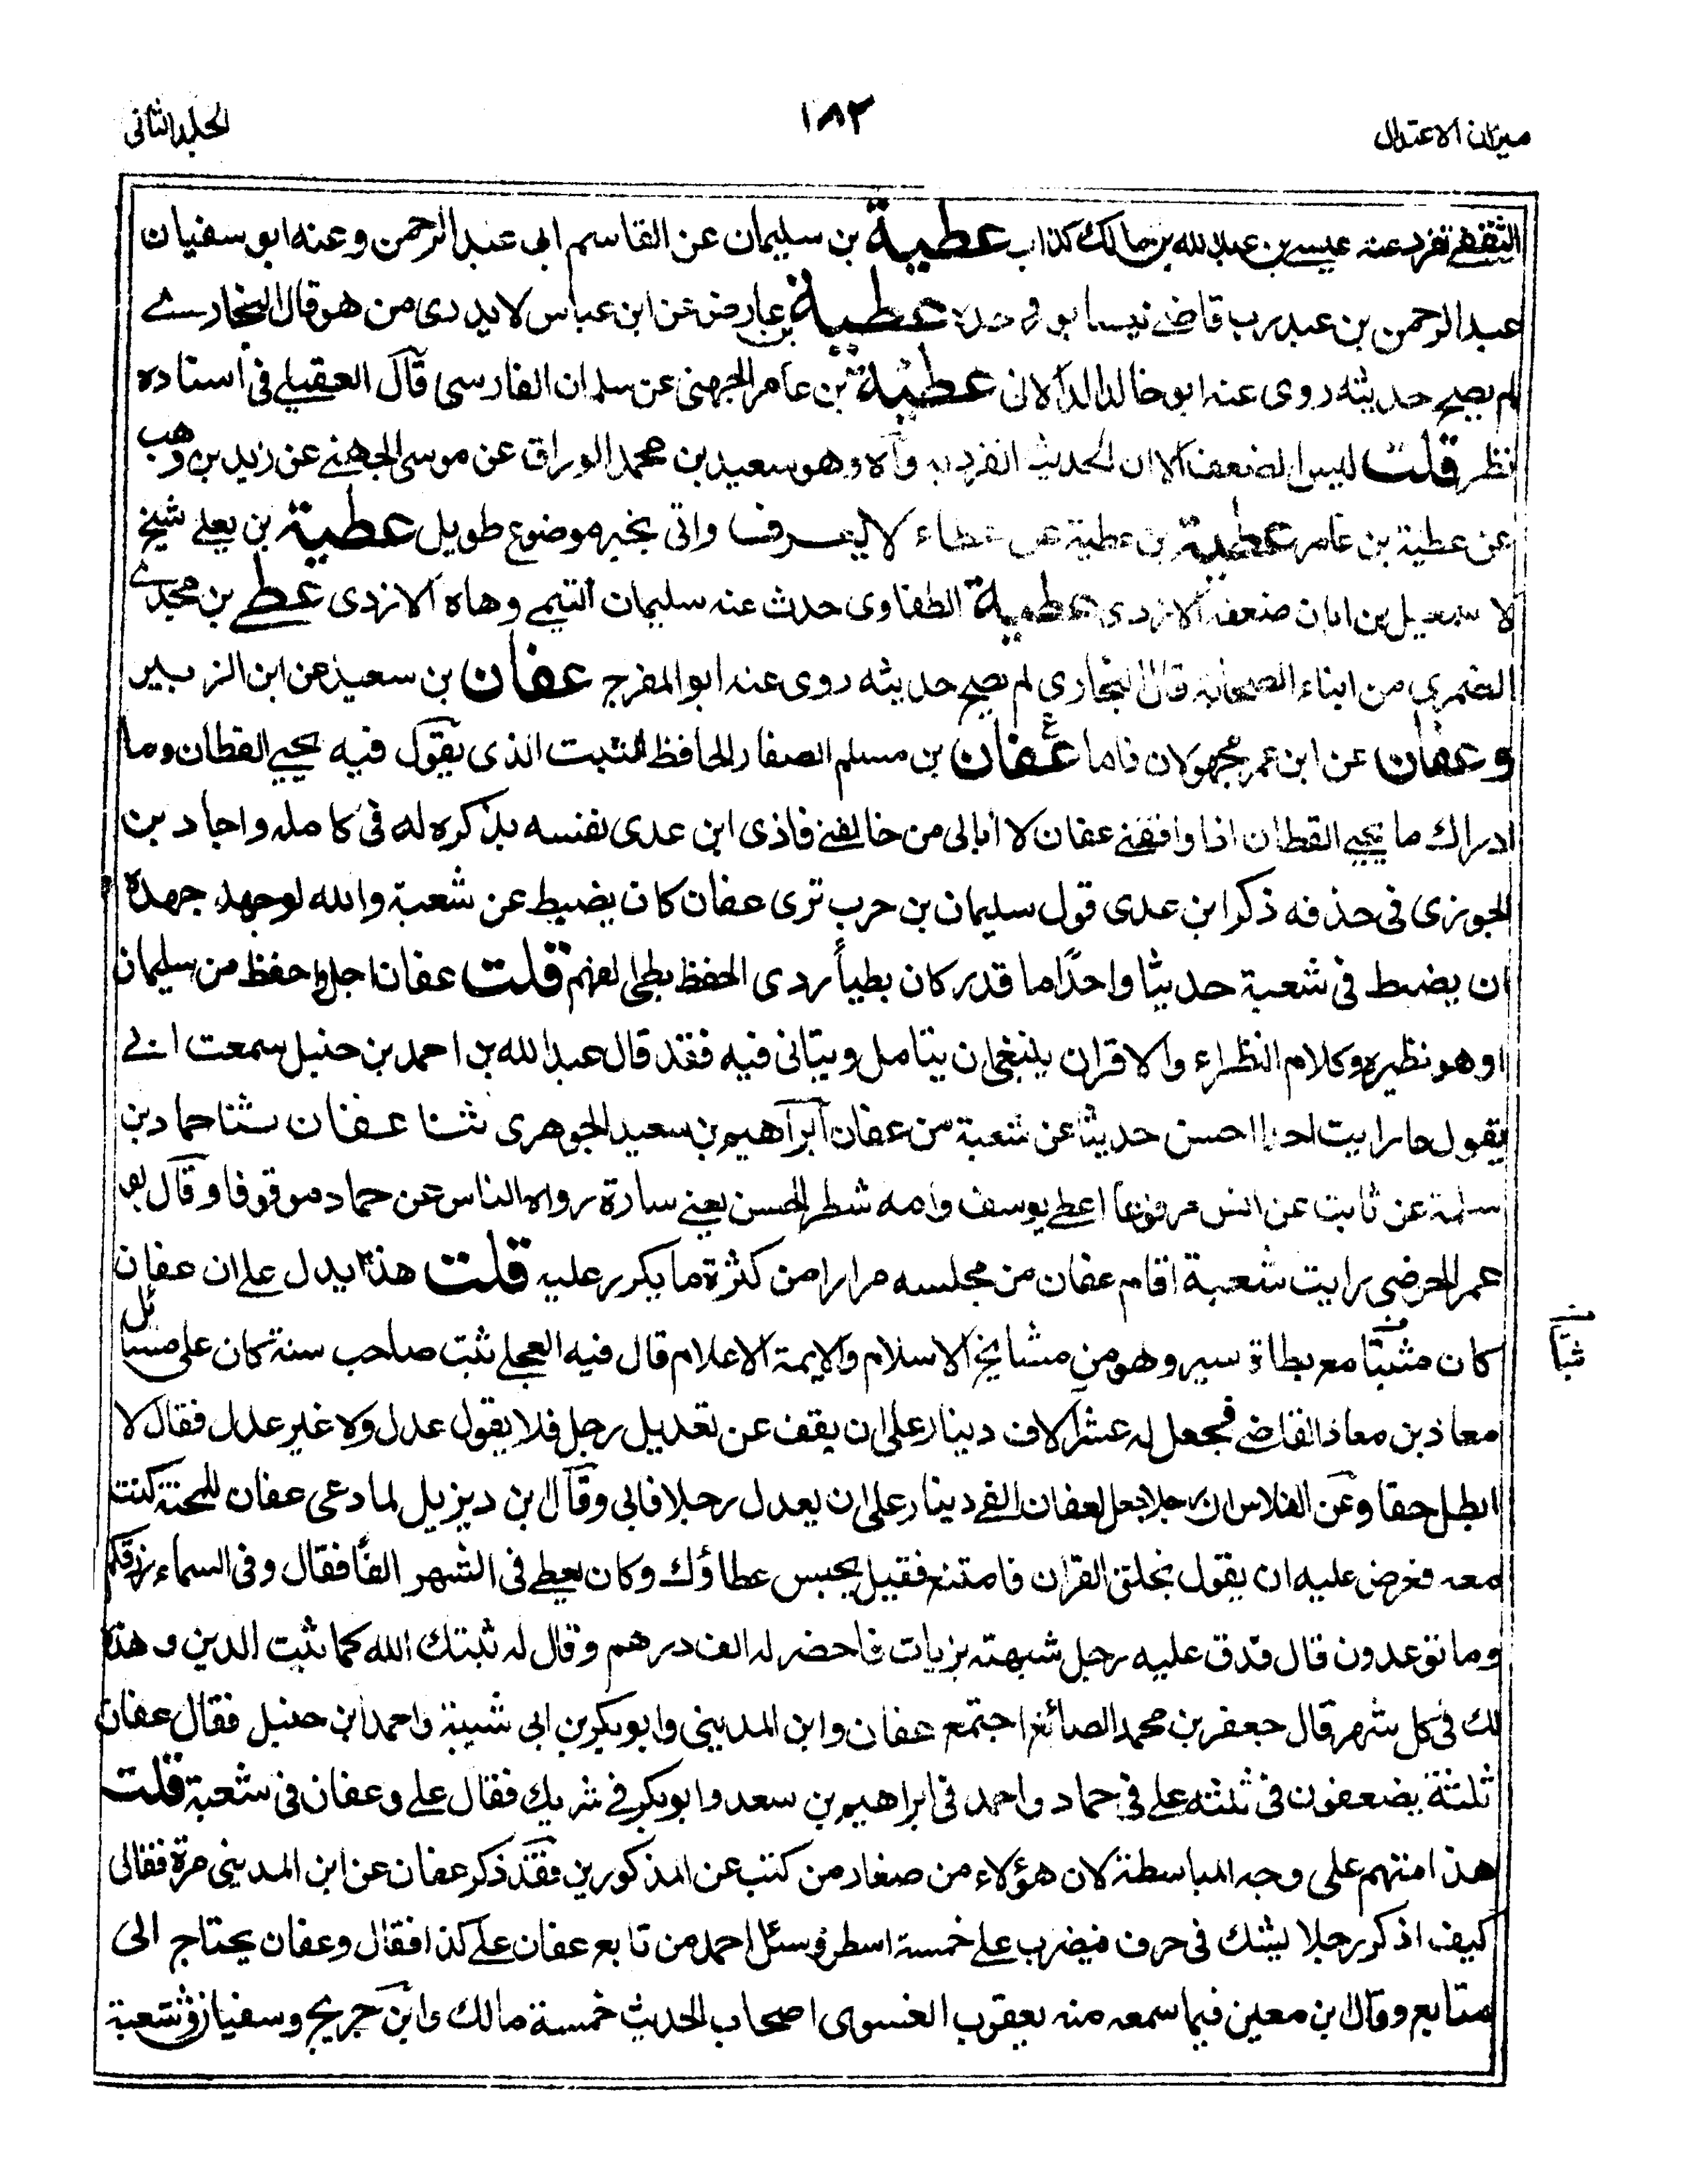 ميزان الاعتدال
١٨٢
الجلد الثانى
الثقفے تفرد عنه عيسے بن عبد الله بن مالك كذاب عطية بن سليمان عن القاسم ابى عبد الرحمن وعنه ابو سفيان
عبد الرحمن بن عبد رب قاضے نيسابور حده عطية بن عارض عن ابن عباس لا يدرى من هو قال البخارے
لم يصح حديثه روى عنه ابو خالد الدالانى عطية بن عامر الجهنى عن سلمان الفارسى قال العقيلے فى اسناده
نظر قلت ليس لضعف الا ان الحديث انفرد به رواه وهو سعيد بن محمد الوراق عن موسى الجهنے عن زيد بن وهب
عن عطية بن عامر عطية بن عطية عن عطاء لا يعرف واتى بخبر موضوع طويل عطية بن يعلے شيخ
لا سمعيل بن ابان ضعفه الازدى عطية الطفاوى حدث عنه سليمان التيمے وهاه الازدى عطے بن مجدے
الضمرى من ابناء الصحابة قال البخارى لم يصح حديثه روى عنه ابو المفرج عفان بن سعيد عن ابن الزبير
وعفان عن ابن عمر مجهولان فاما عفان ع بن مسلم الصفار الحافظ الثبت الذى يقول فيه يحيے القطان وما
ادراك ما يحيے القطان اذا وافقنے عفان لا ابالى من خالفنے فاذى ابن عدى نفسه بذكره له فى كامله واجاد بن
الجوزى فى حذفه ذكر ابن عدى قول سليمان بن حرب ترى عفان كان يضبط عن شعبة والله لو جهد جهده
ان يضبط فى شعبة حديثا واحدًا ما قدر كان بطيأ ردى الحفظ بطى الفهم قلت عفان اجل واحفظ من سليمان
او هو نظيره وكلام النظراء والاقران ينبغى ان يتامل ويتانى فيه فقد قال عبد الله بن احمد بن حنبل سمعت ابے
يقول ما رايت احدا احسن حديثا عن شعبة من عفان ابراهيم بن سعيد الجوهرى ثنا عفان ثنا حماد بن
سلمة عن ثابت عن انس مرفوعا اعطے يوسف وامه شطر الحسن يعنے سارة رواه الناس عن حماد موقوفا وقال ابو
عمر الحوضى رايت شعبة اقام عفان من مجلسه مرارا من كثرة ما يكرر عليه قلت هذا يدل على ان عفان
كان مثبتًا مع بطاة سير وهو من مشايخ الاسلام والايمة الاعلام قال فيه العجلے ثبت صاحب سنة كان على مسائل
ثبتًا
معاذ بن معاذ القاضے فجعل له عشرة الاف دينار على ان يقف عن تعديل رجل فلا يقول عدل ولا غير عدل فقال لا
ابطل حقا وعن الفلاس ان رجلا جعل لعفان الفے دينار على ان يعدل رجلا فابى وقال ابن ديزيل لما دعى عفان للمحنة كنت
معه فعرض عليه ان يقول بخلق القران فامتنع فقيل يحبس عطاؤك وكان يعطے فى الشهر الفًا فقال وفى السماء رزقكم
وما توعدون قال فدق عليه رجل شبهته بزيات فاحضر له الف درهم وقال له ثبتك الله كما ثبت الدين وهذه
لك فى كل شهر قال جعفر بن محمد الصائغ اجتمع عفان وابن المدينى وابو بكر بن ابى شيبة واحمد ابن حنبل فقال عفان
ثلثة يضعفون فى ثلثه علے فى حماد واحمد فى ابراهيم بن سعد وابو بكر فے شريك فقال علے وعفان فى شعبة قلت
هذا منهم على وجه المباسطة لان هؤلاء من صغار من كتب عن المذكورين فقد ذكر عفان عن ابن المدينى مرة فقال
كيف اذكر رجلا يشك فى حرف فيضرب علے خمسة اسطر وسئل احمد من تابع عفان علے كذا فقال وعفان يحتاج الى
متابع وقال ابن معين فيما سمعه منه يعقوب الفسوى اصحاب الحديث خمسة مالك وابن جريج وسفيان وشعبة